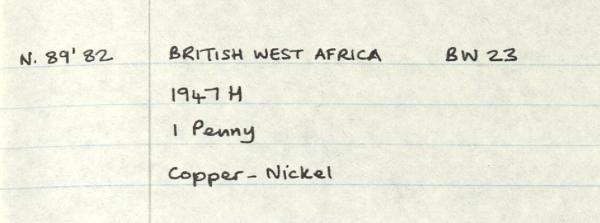 N. 89'82 BRITISH WEST AFRICA BW 23
1947 H
1 Penny
Copper-Nickel